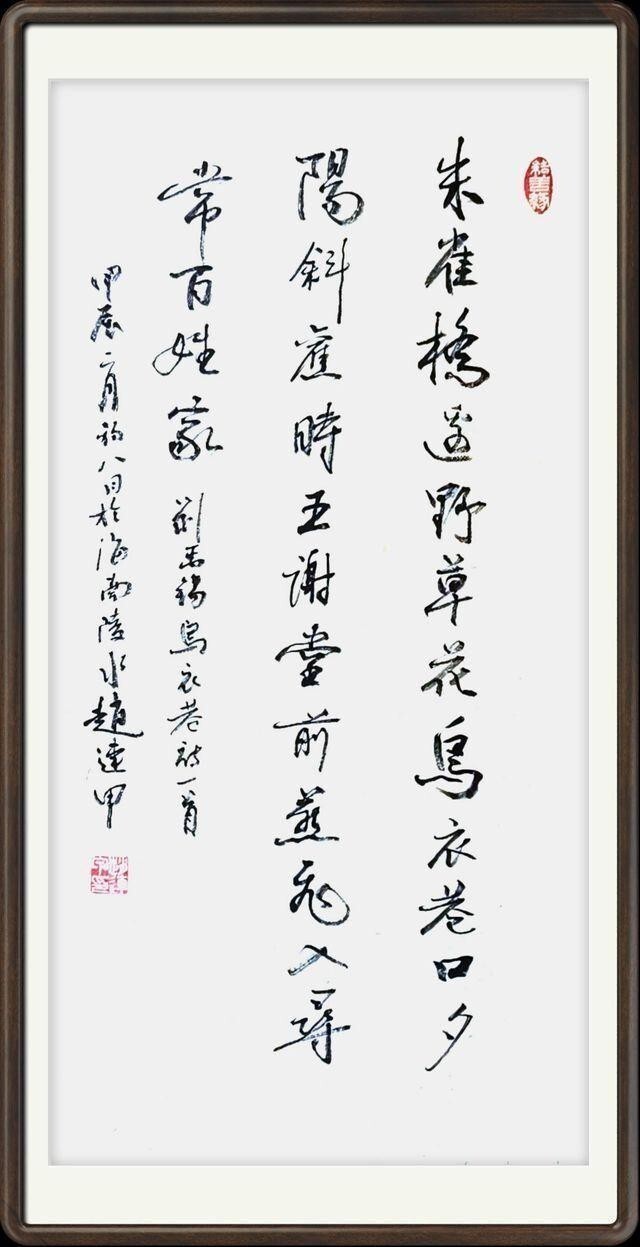 朱雀橋邊野草花烏衣巷口夕
陽斜舊時王謝堂前燕飛入尋
常百姓家
劉禹錫烏衣巷詩一首
甲辰二月初八日於海南陵水趙達甲